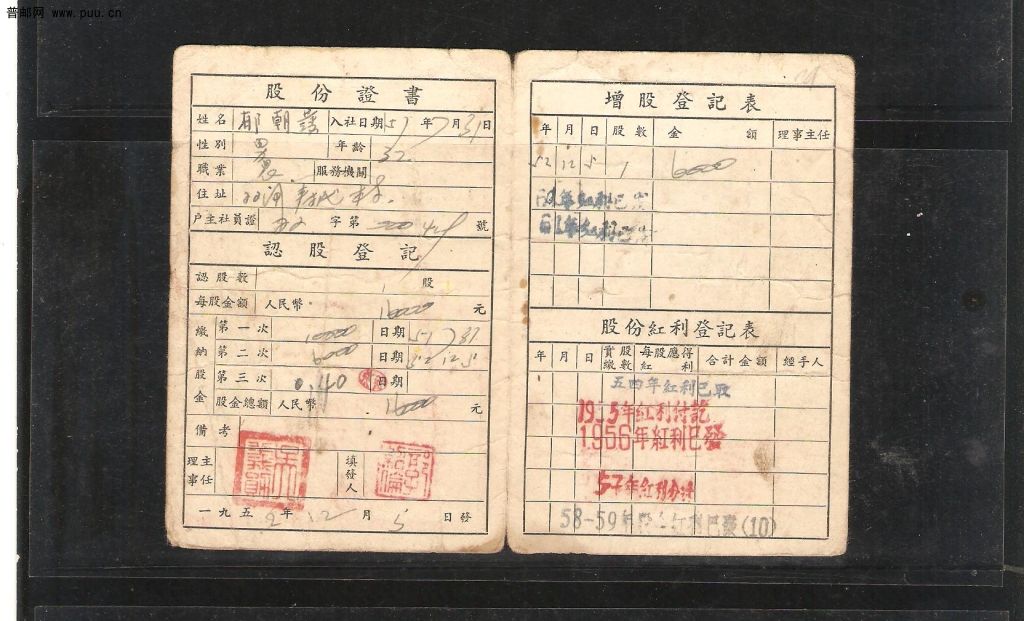 普邮网 www.puu.cn
股份證書
姓名 朝 入社日期 51年7月31日
性別 男 年齡 32
職業 農 服務機關
住址
戶主社員證 字第 號
認股登記
認股數 股
每股金額 人民幣 元
繳納股金
第一次 10000 日期 51 7 31
第二次 6000 日期 52 12 5
第三次 0.40 日期
股金總額 人民幣 元
備考
理事主任
填發人
一九五2年12月5日發
增股登記表
年 月 日 股數 金額 理事主任
52 12 5 1 6000
年紅利已
年紅利已
股份紅利登記表
年 月 日 實繳股數 每股應得紅利 合計金額 經手人
五四年紅利已取
1915年紅利付訖
1956年紅利已發
57年紅利分
58-59年 紅利已發(10)